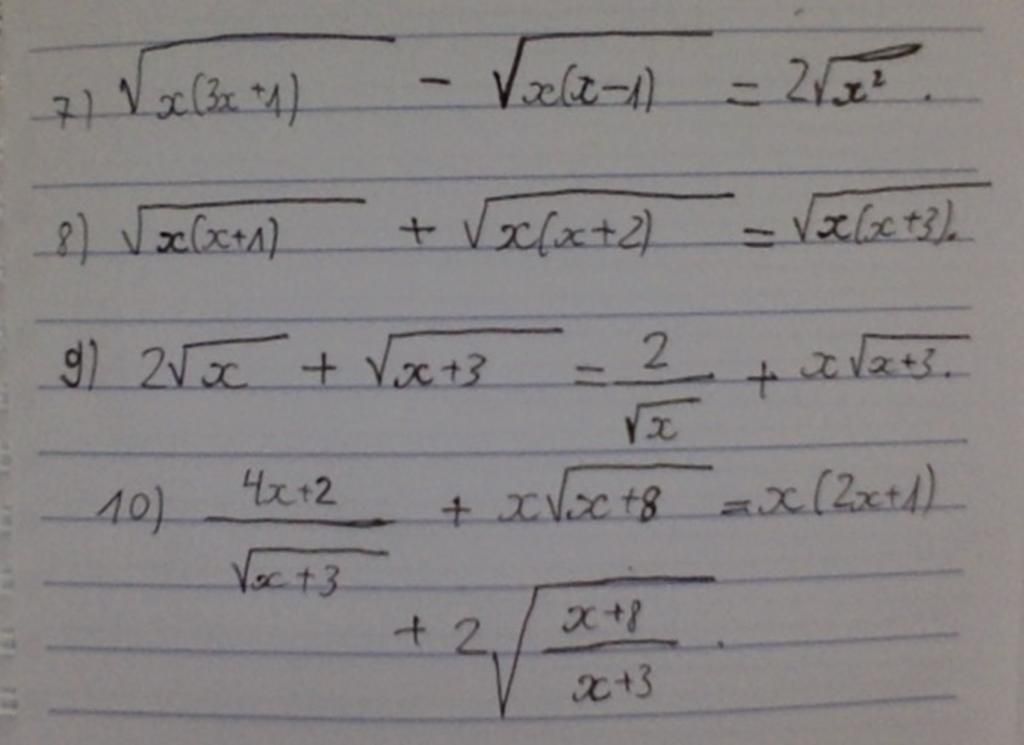 7) √(x(3x+1)) - √(x(x-1)) = 2√(x²).
8) √(x(x+1)) + √(x(x+2)) = √(x(x+3)).
9) 2√x + √(x+3) = 2/√x + x√(x+3).
10) (4x+2)/√(x+3) + x√(x+8) = x(2x+1)
+ 2√((x+8)/(x+3)).